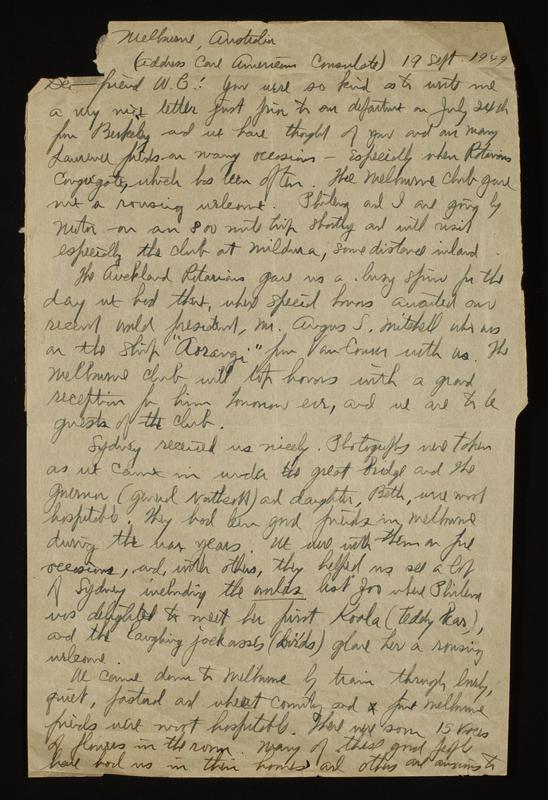 Melbourne, Australia
(address Care American Consulate) 19 Sept 1949
Dear friend W.C.: You were so kind as to write me
a very nice letter just prior to our departure on July 24th
from Berkeley and we have thought of you and our many
Lawrence friends on many occasions - Especially when Rotarians
Congregate, which has been often. The Melbourne Club gave
me a rousing welcome. Philena and I are going by
motor on an 800 mile trip shortly and will visit
especially the club at Mildura, some distance inland.
The Auckland Rotarians gave us a busy time for the
day we had there, where special honors awaited our
recent world president, Mr. Angus S. Mitchell who was
on the ship "Aorangi" from Vancouver with us. The
Melbourne club will top honors with a grand
reception for him tomorrow eve, and we are to be
guests of the club.
Sydney received us nicely. Photographs were taken
as we came in under the great bridge and the
Governor (General Northcott) and daughter, Beth, were most
hospitable. They had been good friends in Melbourne
during the war years. We were with them on five
occasions, and, with others, they helped us see a lot
of Sydney including the worlds best zoo where Philena
was delighted to meet her first Koala (teddy bear),
and the laughing jackasses (birds) gave her a rousing
welcome.
We came down to Melbourne by train through lovely,
quiet, pastoral and wheat country and x fine Melbourne
friends were most hospitable. There were some 15 vases
of flowers in the room. Many of these good people
have had us in their homes and others are anxious to